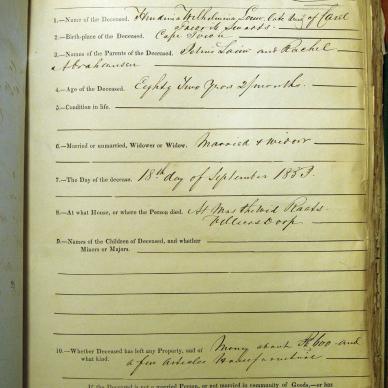 1.—Name of the Deceased. Hendrina Wilhelmina Louw, late of Carel
2.—Birth-place of the Deceased. Cape Town
3.—Names of the Parents of the Deceased. Louw and Rachel
4.—Age of the Deceased. Eighty Two Years 2/months.
5.—Condition in life.
6.—Married or unmarried, Widower or Widow. Married & widow
7.—The Day of the decease. 18th day of September 1853.
8.—At what House, or where the Person died. At
9.—Names of the Children of Deceased, and whether
Minors or Majors.
10.—Whether Deceased has left any Property, and of Money about 600 and
what kind. a few articles
If the Deceased is not a married Person, or not married in community of Goods,—or has